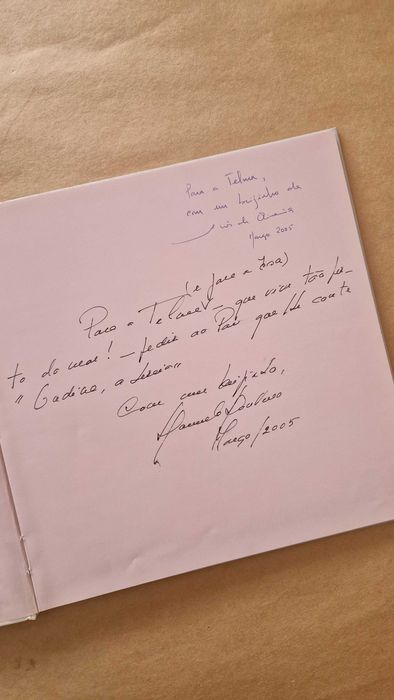 Para a Telma,
com um beijinho da
Março 2005
(e para a Isa)
Para a Telma – que vive tão per-
to do mar! – pedir ao Pai que lhe conte
"
Com um beijinho,
Março/2005